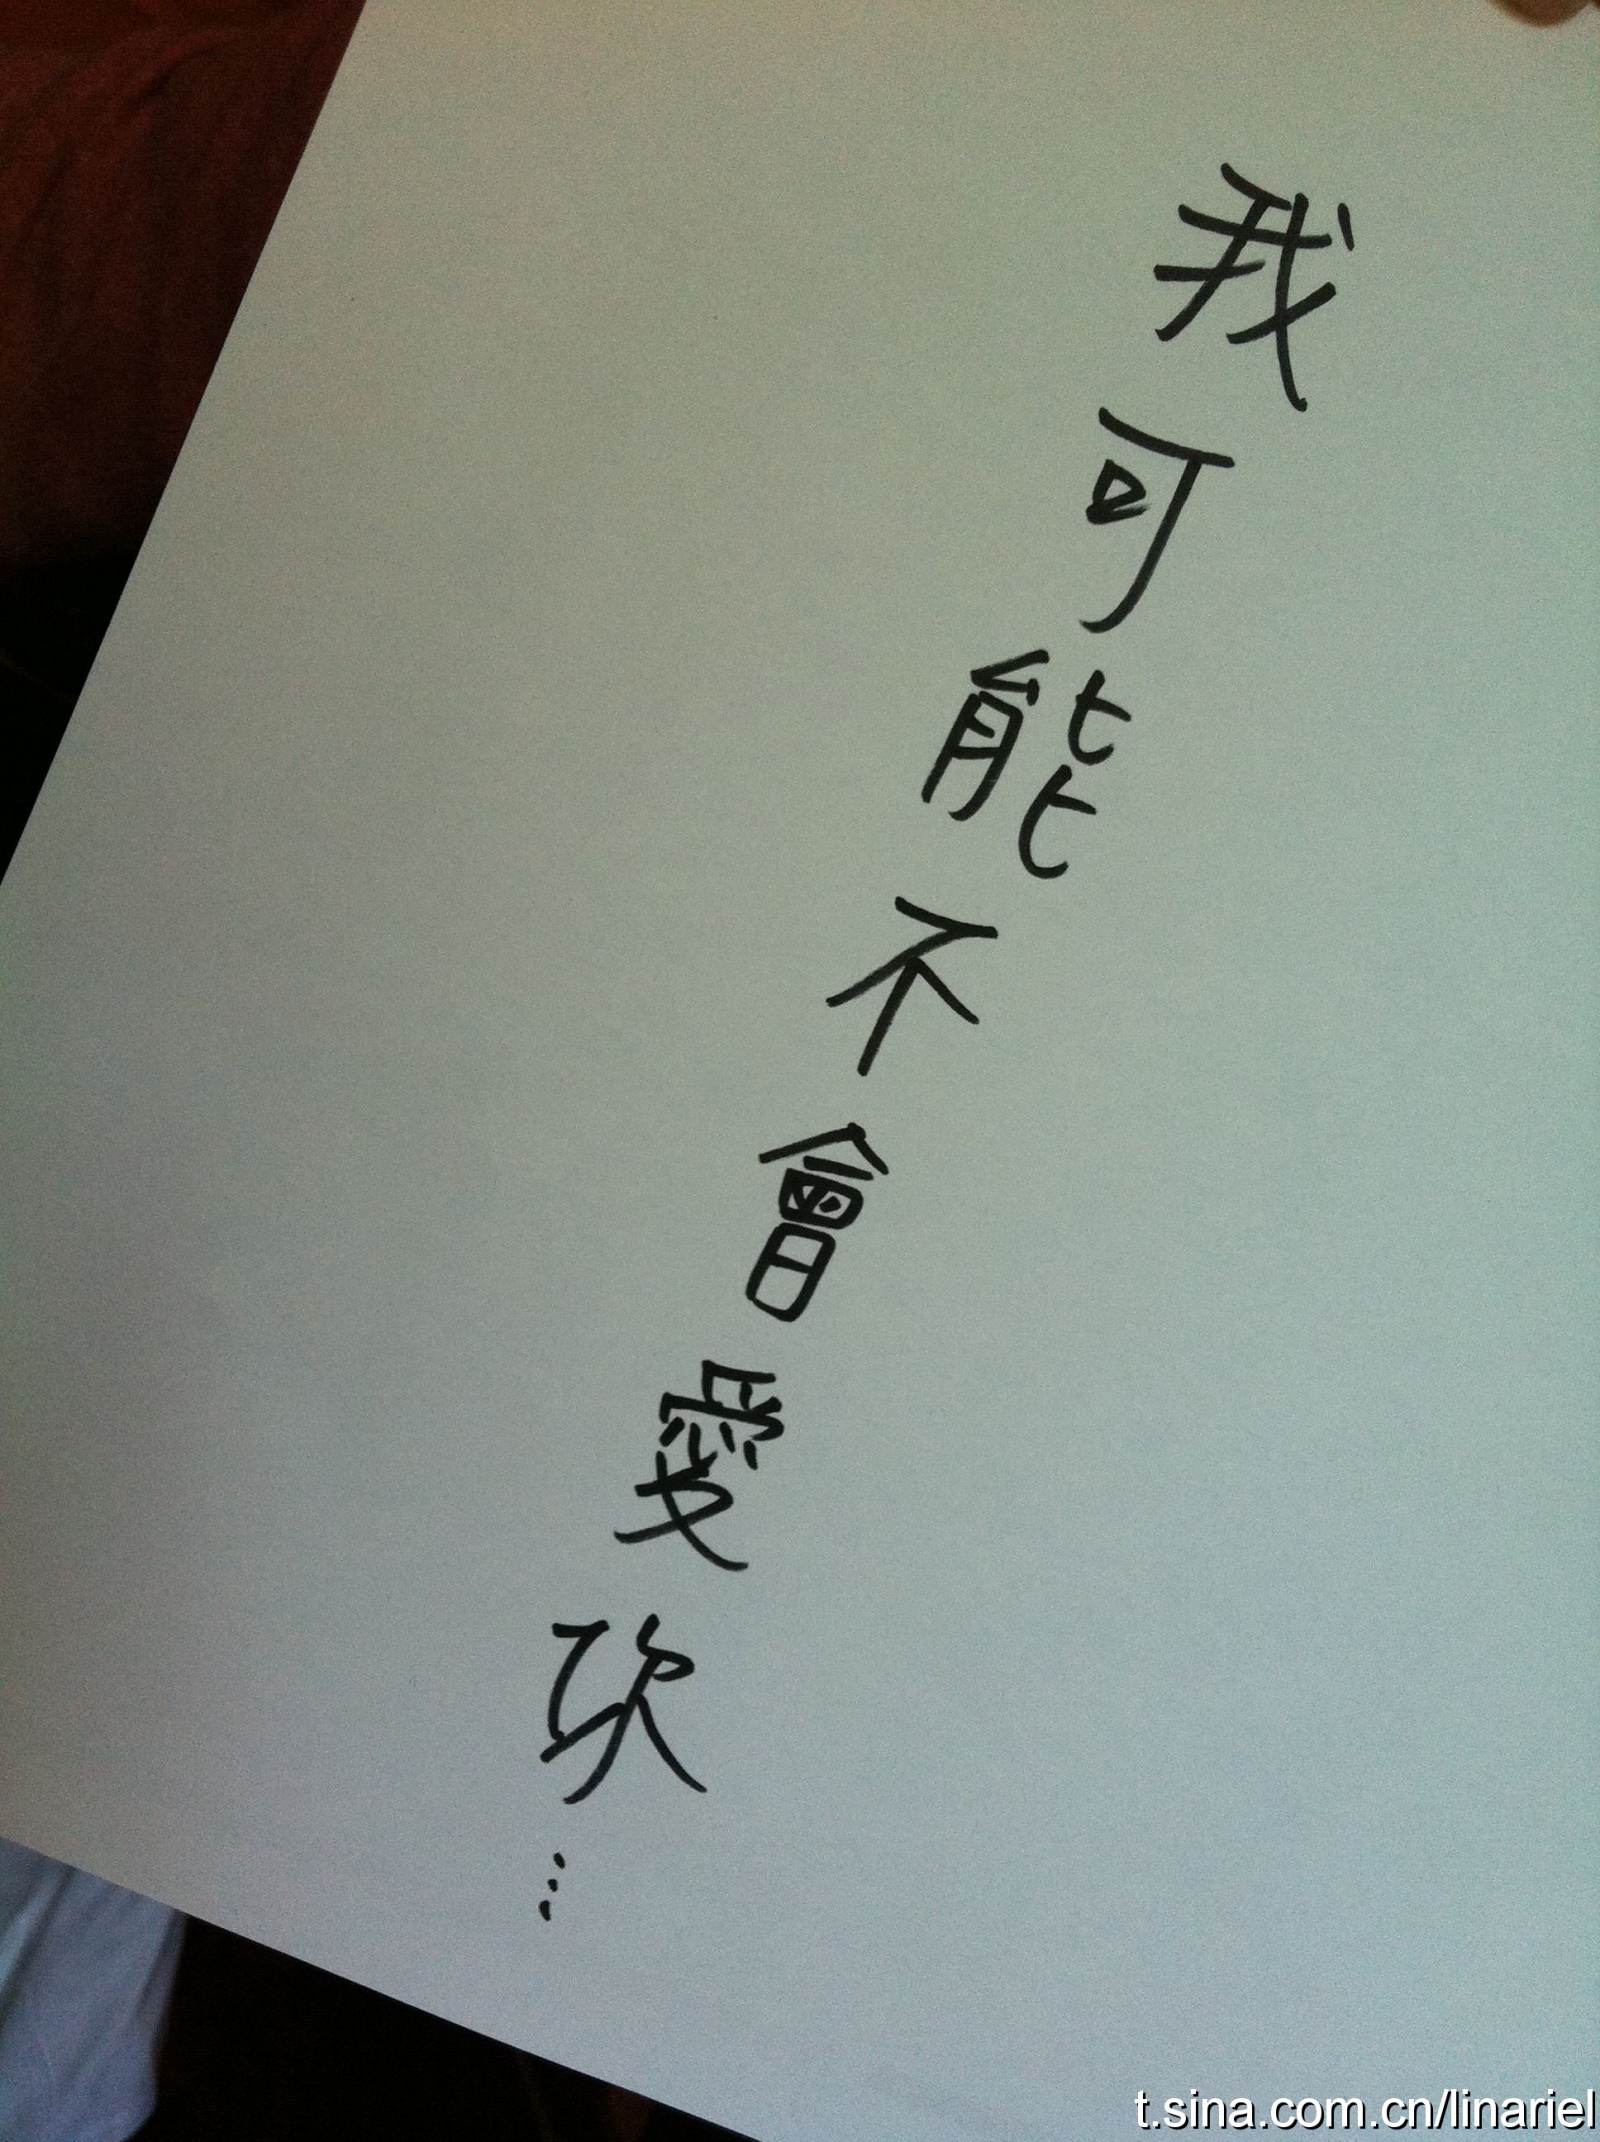 我可能不會愛...
t.sina.com.cn/linariel